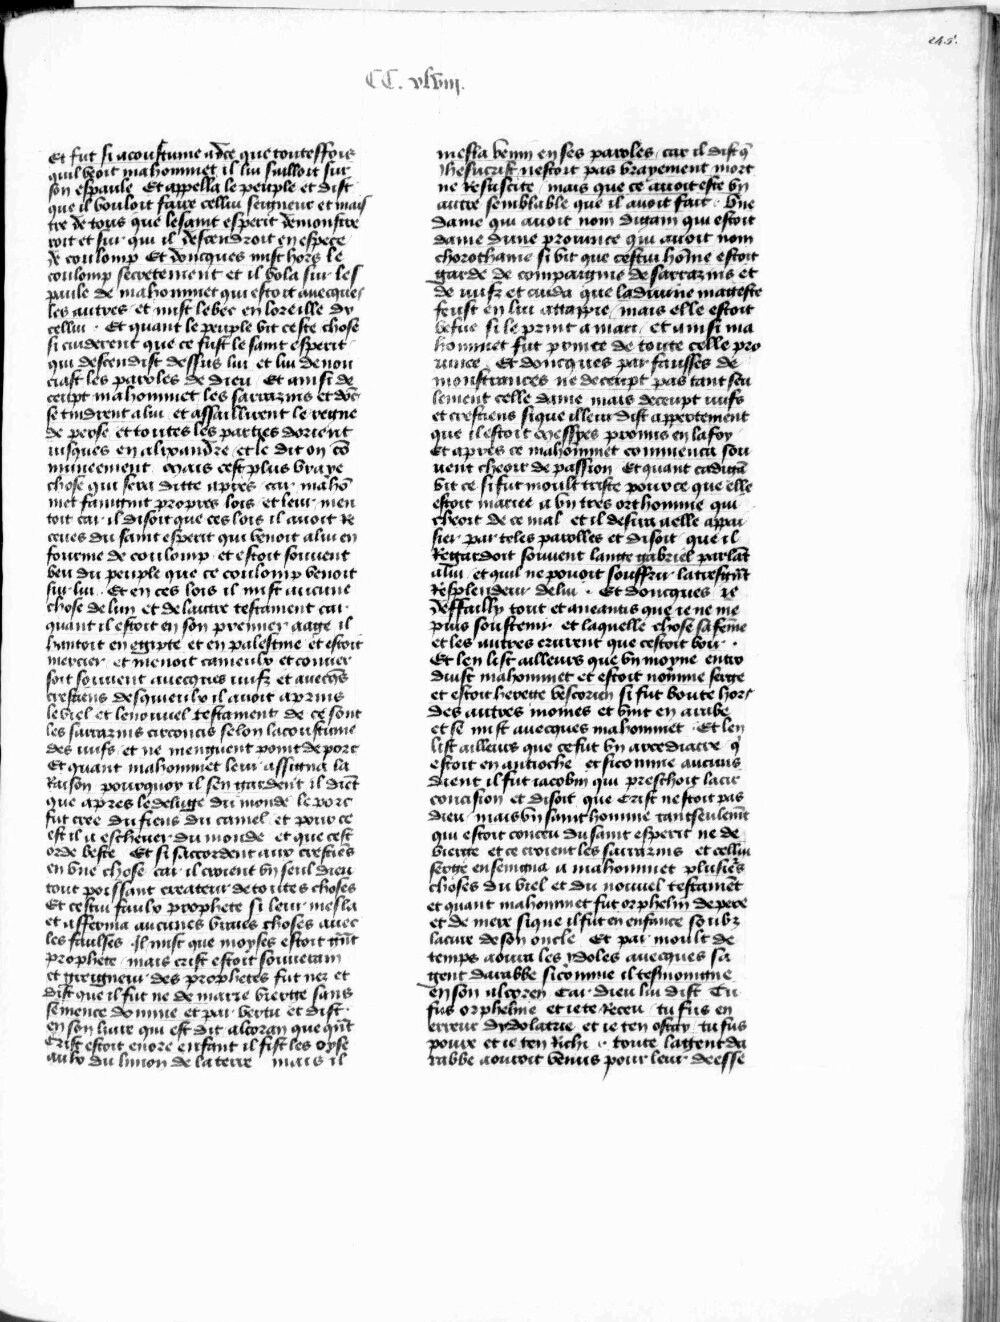 245.
CC. xlviii.
Et fut si acoustume a ce que touteffois
quil veoit mahommet il lui sailloit sur
son espaule Et appella le peuple et dist
que il vouloit faire cellui seigneur et mais
tre de tous que le saint esperit demonstre
roit et sur qui il descendroit en espece
de coulomp Et doncques mist hors le
coulomp secretement et il vola sur les
paule de mahommet qui estoit avecques
les autres et mist le bec en loreille dy
cellui . Et quant le peuple vit ceste chose
si cuiderent que ce fust le saint esperit
qui descendist dessus lui et lui denon
ciast les paroles de dieu Et ainsi de
ceupt mahommet les sarrazins et dōc
se tindrent a lui et assaillirent le regne
de perse et toutes les parties dorient
iusques en alixandre et le dit on cō
muneement Mais cest plus vraye
chose qui sera ditte apres car mahō
met faingnit propres lois et leur men
toit car il disoit que ces lois il avoit Re
ceues du saint esperit qui venoit a lui en
fourme de coulomp et estoit souvent
veu du peuple que ce coulomp venoit
sur lui . Et en ces lois il mist aucune
chose de lun et de lautre testament car
quant il estoit en son premier aage il
hantoit en egipte et en palestine et estoit
mercier et menoit cameulx et conver
soit souvent avecques iuifz et avecq̄s
crestiens desquieulx il avoit aprins
le viel et le nouvel testament de ce sont
les sarrazins circoncis selon la coustume
des iuifs et ne menguent point de porc
Et quant mahommet leur assigna la
Raison pourquoy il sen gardent il diēt
que apres le deluge du monde le porc
fut cree du fiens du camel et pour ce
est il a eschever du monde et que cest
orde beste Et si saccordent aux crestiēs
en une chose car il croient un seul dieu
tout poissant createur de toutes choses
Et cestui faulx prophete si leur mesla
et afferma aucunes vraies choses avec
les faulses . Il mist que moyses estoit gn̄t
prophete mais crist estoit souverain
et greigneur des prophetes fut nez et
dist que il fut ne de marie vierge sans
semence domme et par vertu et dist
en son livre qui est dit alcoran que qn̄t
Crist estoit enore enfant il fist les oyse
aulx du limon de la terre mais il
mesla venin en ses paroles car il dist q̄
ihesucrist nestoit pas vrayement mort
ne Resuscite mais que ce avoit este un
autre semblable que il avoit fait . Une
dame qui avoit nom digam qui estoit
dame dune province qui avoit nom
chorothanie si vit que cestui hōme estoit
garde de compaignie de sarrazins et
de iuifz et cuida que la divine mageste
feust en lui attapie mais elle estoit
vefue si le print a mari et ainsi ma
hommet fut prince de toute celle pro
vince . Et doncques par fausses de
monstrances ne deceupt pas tant seu
lement celle dame mais deceupt iuifs
et crestiens si que il leur dist appertement
que il estoit messyes promis en la foy
Et apres ce mahommet commenca sou
vent cheoir de passion Et quant cadigā
vit ce si fut moult triste pour ce que elle
estoit mariee a un tres ort homme qui
cheoit de ce mal et il desira a elle appai
sier par teles parolles et disoit que il
Regardoit souvent lange gabriel parlāt
a lui et quil ne povoit souffrir la tresgn̄t
Resplendeur de lui . Et doncques ie
deffailly tout et aneantis que ie ne me
puis soustenir et laquelle chose sa fēme
et les autres crurent que cestoit voir .
Et len list ailleurs que un moyne entro
duist mahommet et estoit nōme serge
et estoit herege vescorien si fut boute hors
des autres moines et vint en arabe
et se mist avecques mahommet . Et len
list ailleurs que ce fut un arcediacre q̄
estoit en antioche et si comme aucuns
dient il fut iacobin qui preschoit la cir
concision et disoit que Crist nestoit pas
dieu mais un saint homme tant seulemēt
qui estoit conceu du saint esperit ne de
vierge et ce croient les sarrazins et cellui
serge enseigna a mahommet plusieurs
choses du viel et du nouvel testamēt
et quant mahommet fut orphelin de pere
et de mere si que il fut en enfance soubz
la cure de son oncle Et par moult de
temps aoura les ydoles avecques sa
gent darabbe si comme il tesmoingne
en son alcoren Car dieu lui dist Tu
fus orphelme et ie te Receu tu fus en
erreur dydolatrie et ie ten ostay tu fus
povre et ie ten Richi . toute la gent da
rabbe aouroit venus pour leur deesse